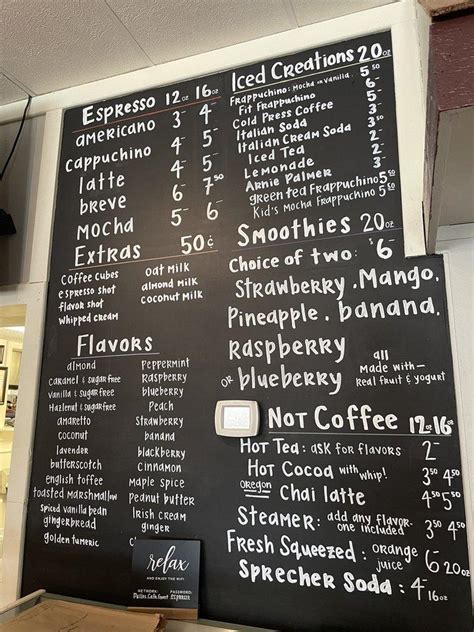 Espresso 12oz 16oz
americano 3- 4-
cappuchino 4- 5-
latte 4- 5-
breve 6- 7.50
mocha 5- 6-
Extras 50¢
coffee cubes
espresso shot
flavor shot
whipped cream
oat milk
almond milk
coconut milk
Flavors
almond
caramel & sugar free
vanilla & sugar free
Hazelnut & sugar free
amaretto
coconut
lavender
butterscotch
english toffee
toasted marshmallow
spiced vanilla bean
gingerbread
golden turmeric
Peppermint
Raspberry
blueberry
Peach
Strawberry
banana
blackberry
Cinnamon
Maple Spice
Peanut butter
Irish cream
ginger
relax
AND ENJOY THE WIFI
NETWORK:
PASSWORD:
Iced Creations 20oz
Frappuchino: Mocha or Vanilla 5.50
Fit Frappuchino 5-
Cold Press Coffee
Italian Soda
Italian Cream Soda
Iced Tea
Lemonade
Arnie Palmer
green tea Frappuchino 5.50
Kid's Mocha Frappuchino 5.50
Smoothies 20oz
Choice of two: $6-
Strawberry, Mango,
Pineapple, banana,
Raspberry
or blueberry
all
made with—
Real fruit & yogurt
Not Coffee 12oz 16oz
Hot Tea: ask for flavors 2-
Hot Cocoa with whip! 3.50 4.50
oregon Chai latte 4.50 5.50
Steamer: add any flavor- one included 3.50 4.50
Fresh Squeezed: orange juice 6- 20oz
Sprecher Soda: 4- 16oz